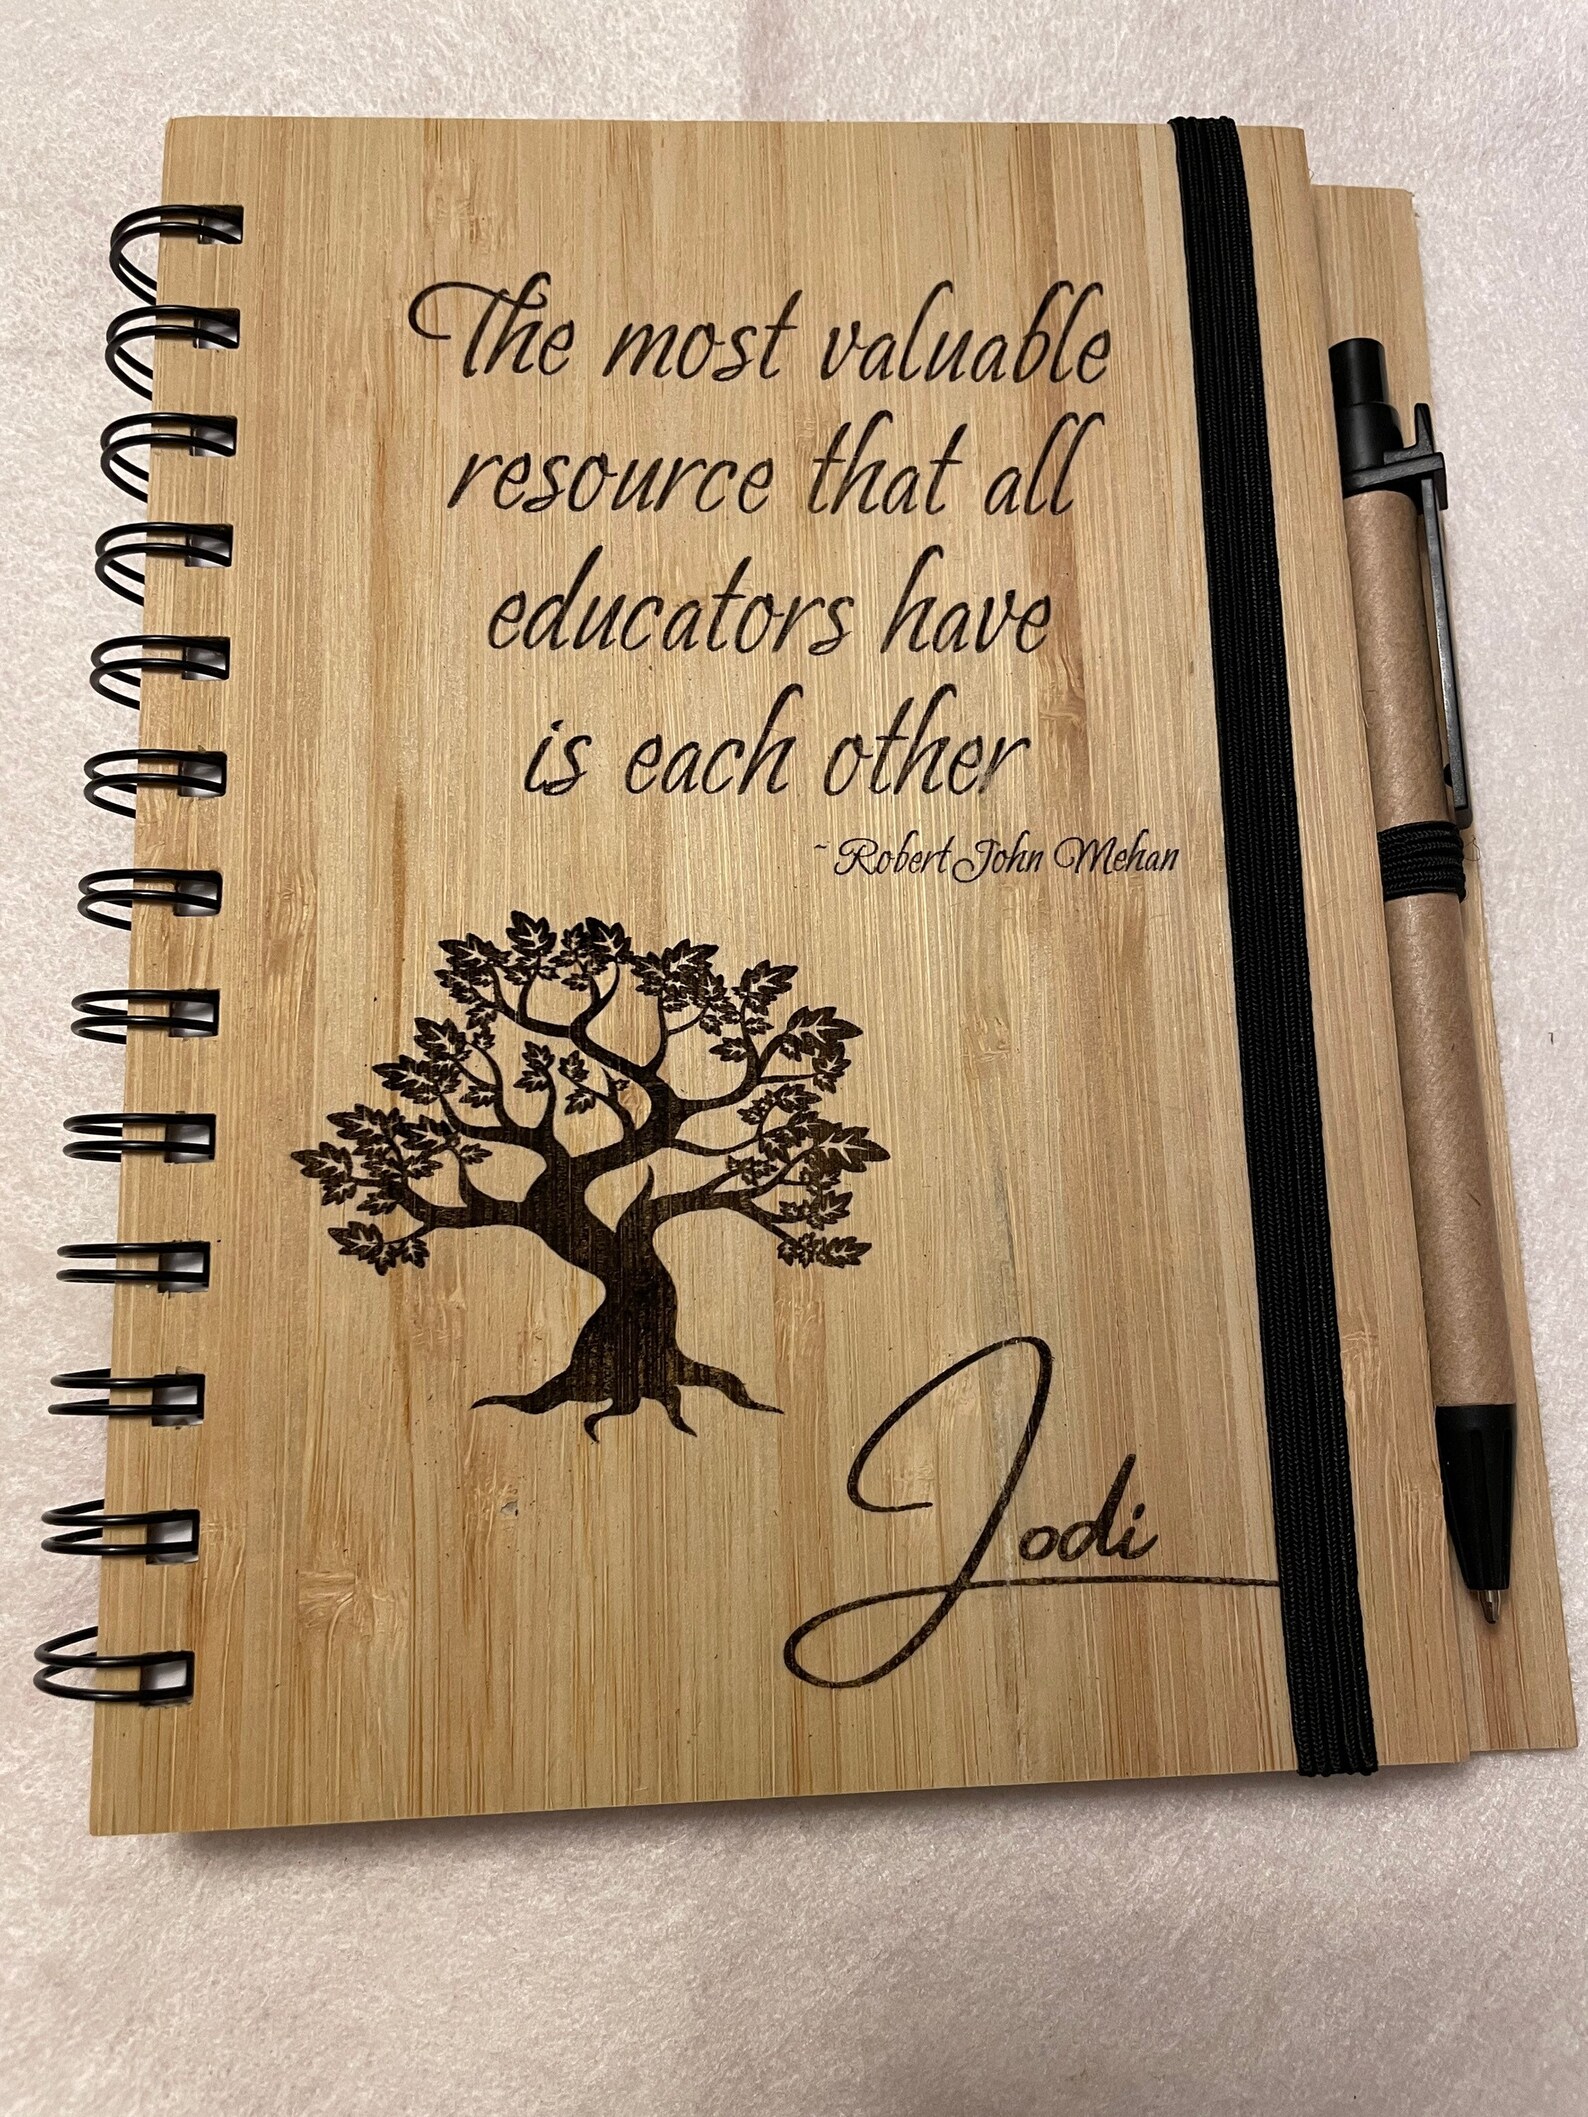 The most valuable
resource that all
educators have
is each other
~ Robert John Mehan
Jodi